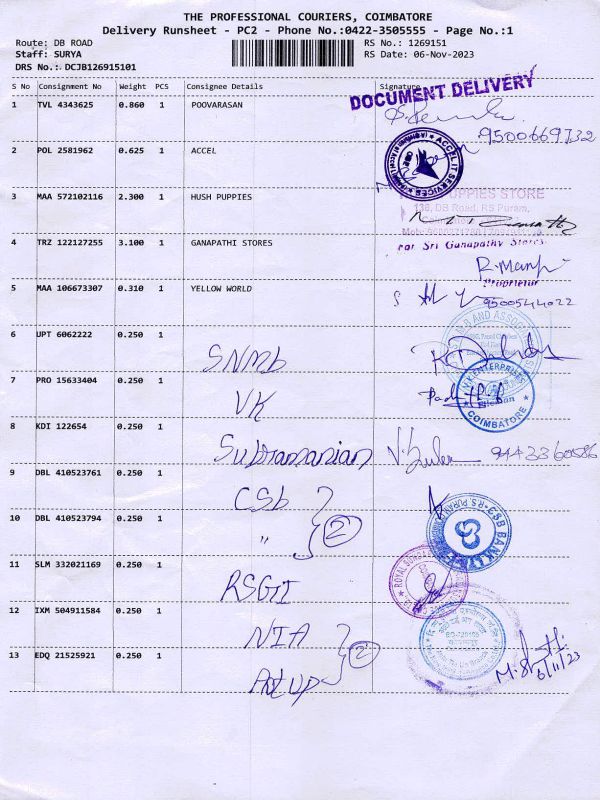 THE PROFESSIONAL COURIERS, COIMBATORE
Delivery Runsheet - PC2 - Phone No.:0422-3505555 - Page No.:1
Route: DB ROAD RS No.: 1269151
Staff: SURYA RS Date: 06-Nov-2023
DRS No.: DCJB126915101
S No Consignment No Weight PCS Consignee Details Signature
DOCUMENT DELIVERY
1 TVL 4343625 0.860 1 POOVARASAN
9500669732
2 POL 2581962 0.625 1 ACCEL
ACCEL IT SERVICES
3 MAA 572102116 2.300 1 HUSH PUPPIES
PUPPIES STORE
130, DB Road, RS Puram,
4 TRZ 122127255 3.100 1 GANAPATHI STORES
For Sri Ganapathy Stores.
Proprietor
5 MAA 106673307 0.310 1 YELLOW WORLD
9500544022
6 UPT 6062222 0.250 1 SNMb
AND ASSOCI
7 PRO 15633404 0.250 1 VK
V.K ENTERPRISES
COIMBATORE
8 KDI 122654 0.250 1 Subramanian
9443360586
9 DBL 410523761 0.250 1 CSb
10 DBL 410523794 0.250 1 " 2
CSB BANK LTD
R.S. PURAM
11 SLM 332021169 0.250 1 RSGII
ROYAL SUN
12 IXM 504911584 0.250 1 NIA
2
13 EDQ 21525921 0.250 1
6/11/23